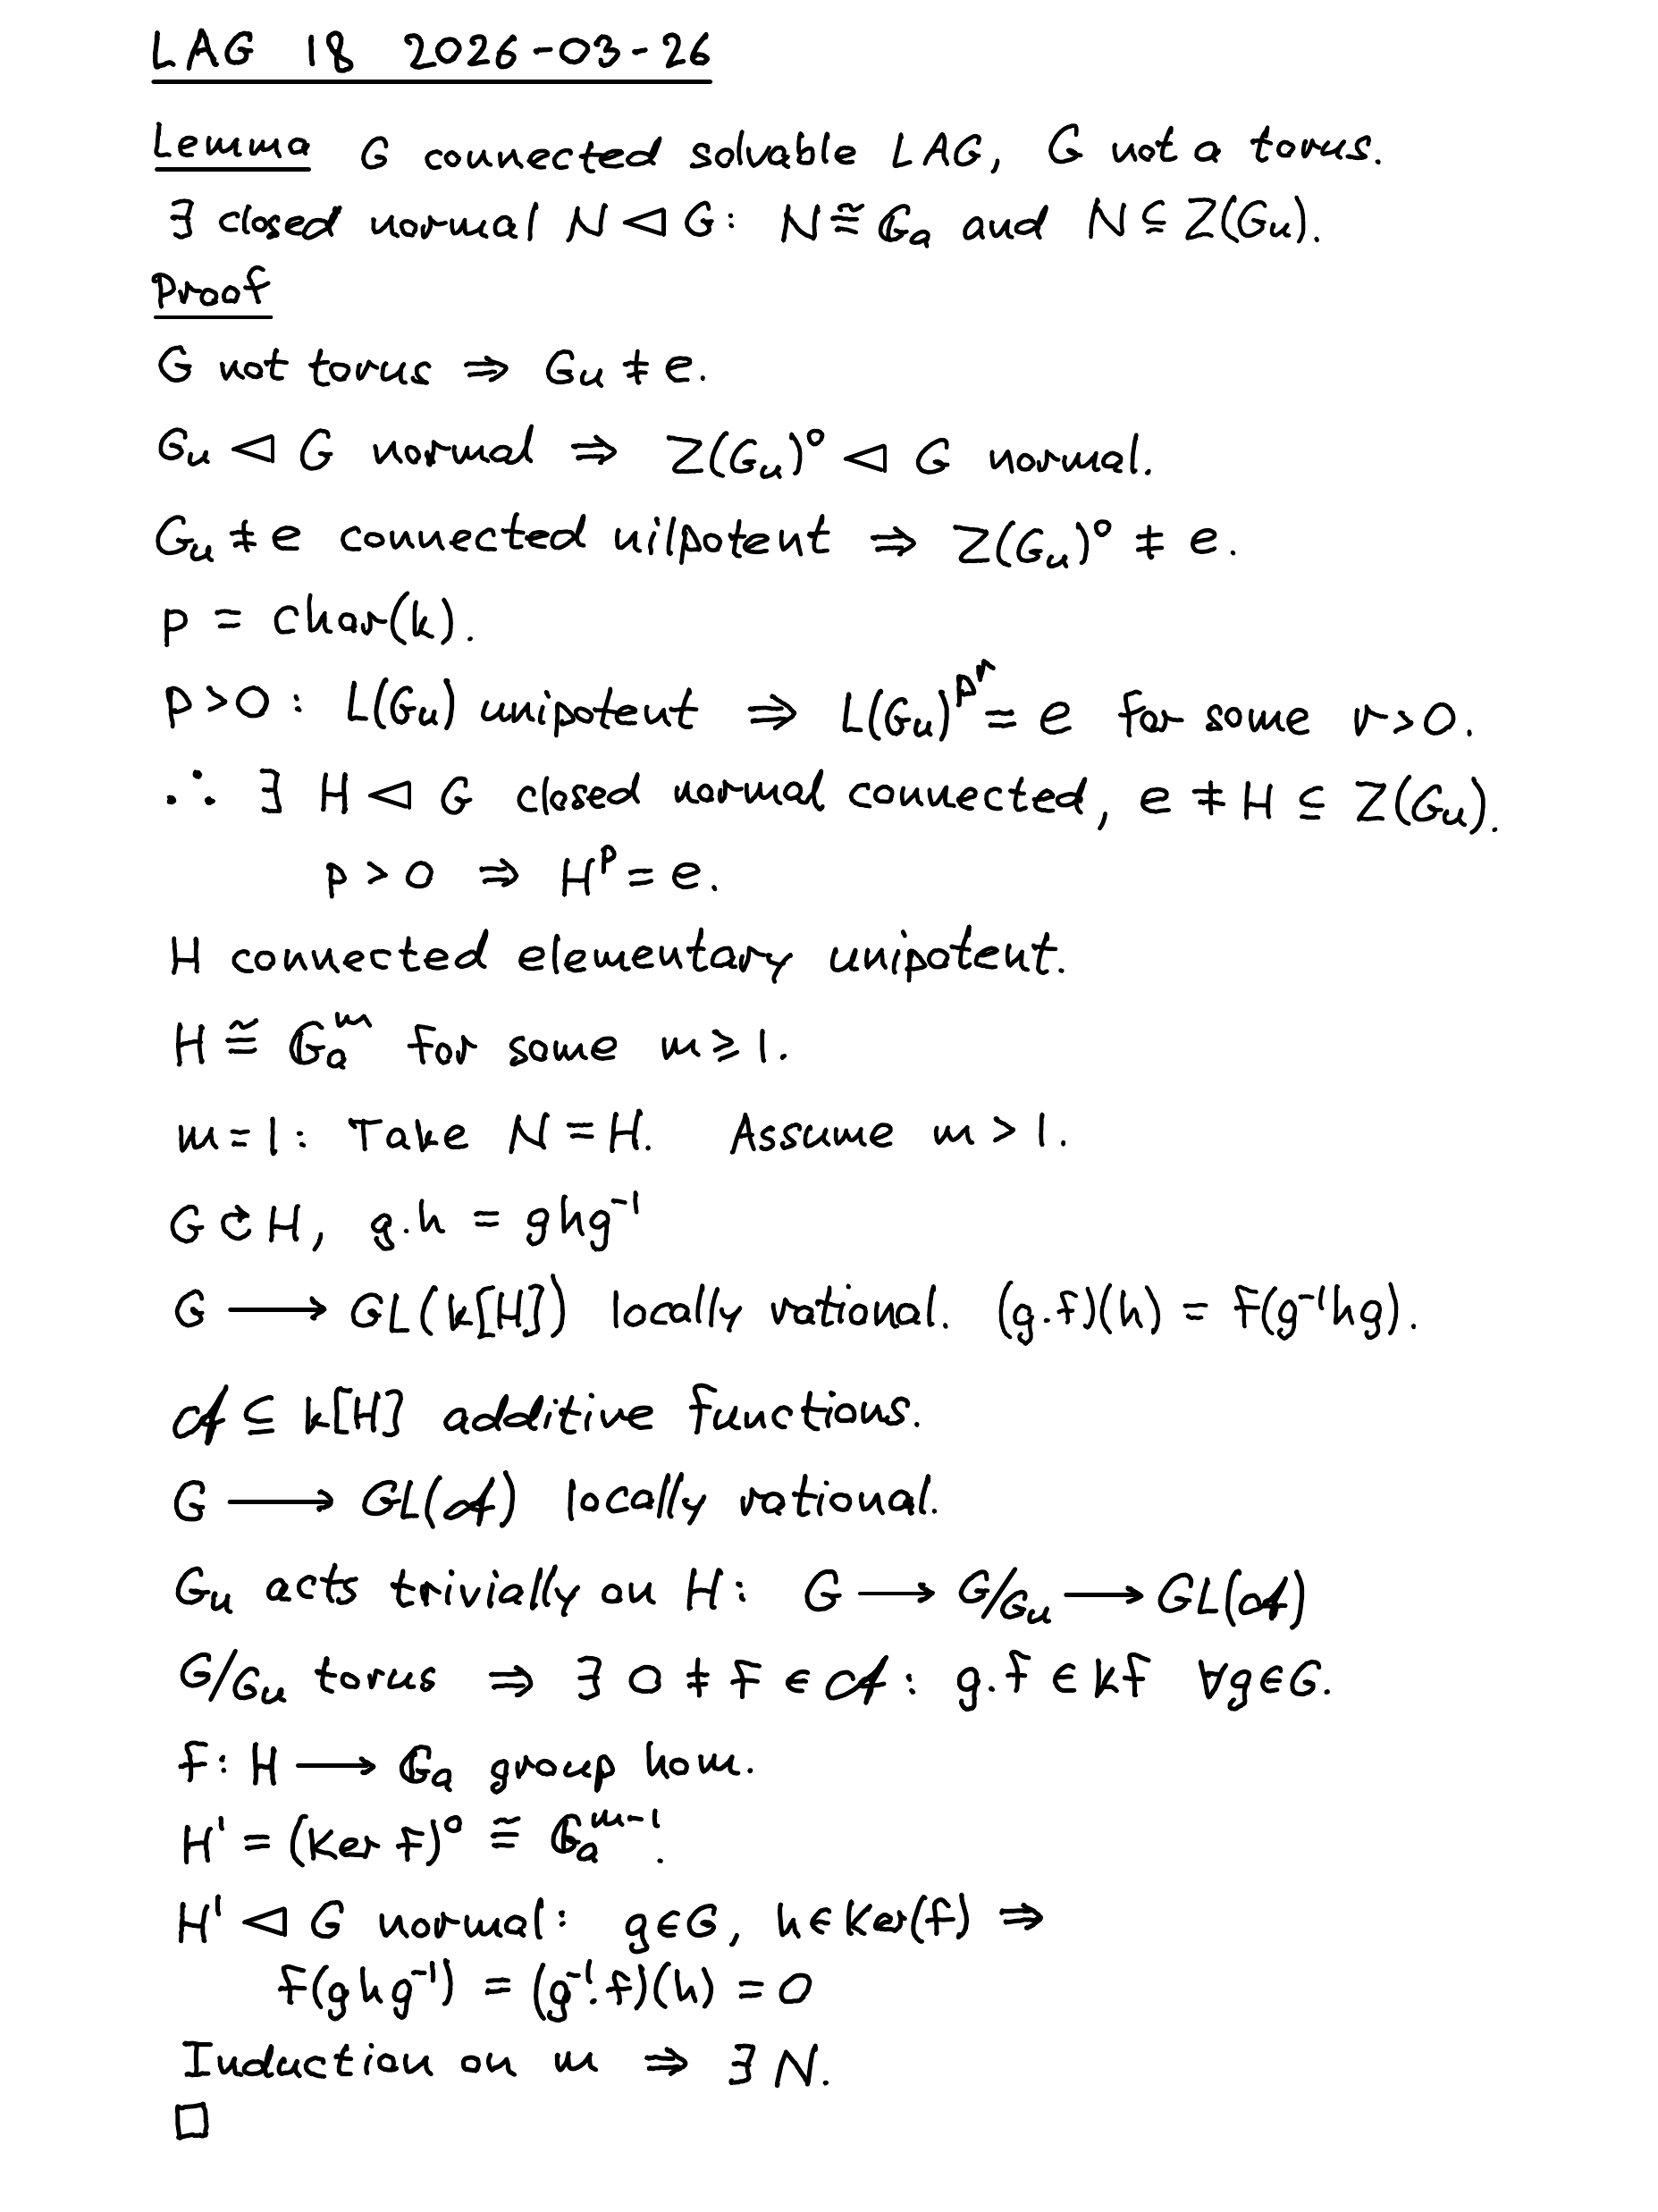 LAG 18 2026-03-26
Lemma G connected solvable LAG, G not a torus.
∃ closed normal N ◁ G: N ≅ 𝔾ₐ and N ⊆ Z(Gᵤ).
Proof
G not torus ⇒ Gᵤ ≠ e.
Gᵤ ◁ G normal ⇒ Z(Gᵤ)° ◁ G normal.
Gᵤ ≠ e connected nilpotent ⇒ Z(Gᵤ)° ≠ e.
p = char(k).
p > 0: L(Gᵤ) unipotent ⇒ L(Gᵤ)^{p^r} = e for some r > 0.
∴ ∃ H ◁ G closed normal connected, e ≠ H ⊆ Z(Gᵤ).
p > 0 ⇒ H^p = e.
H connected elementary unipotent.
H ≅ 𝔾ₐ^m for some m ≥ 1.
m = 1: Take N = H. Assume m > 1.
G ↻ H, g.h = ghg⁻¹
G ⟶ GL(k[H]) locally rational. (g.f)(h) = f(g⁻¹hg).
𝒜 ⊆ k[H] additive functions.
G ⟶ GL(𝒜) locally rational.
Gᵤ acts trivially on H: G ⟶ G/Gᵤ ⟶ GL(𝒜)
G/Gᵤ torus ⇒ ∃ 0 ≠ f ∈ 𝒜: g.f ∈ kf ∀g∈G.
f: H ⟶ 𝔾ₐ group hom.
H' = (Ker f)° ≅ 𝔾ₐ^{m-1}.
H' ◁ G normal: g∈G, h∈Ker(f) ⇒
f(ghg⁻¹) = (g⁻¹.f)(h) = 0
Induction on m ⇒ ∃ N.
□